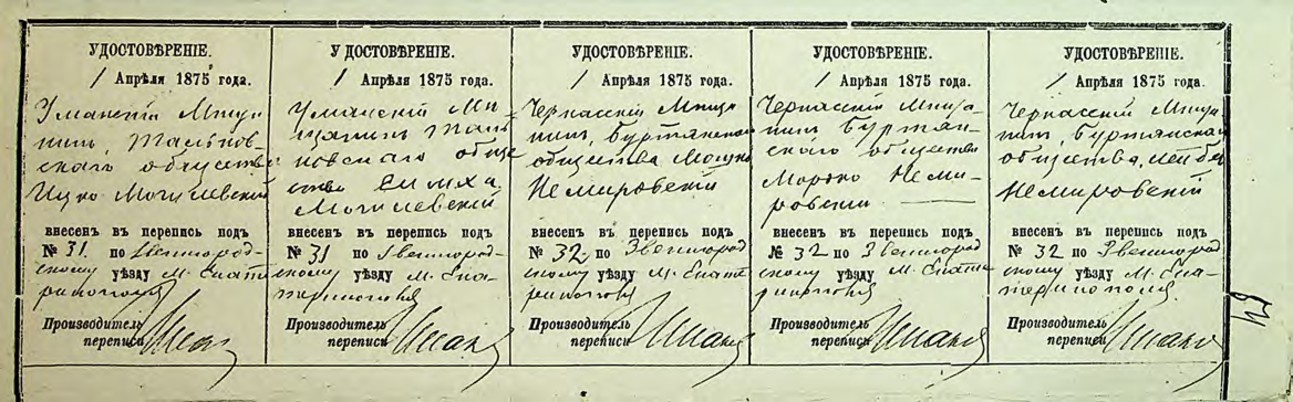 УДОСТОВѢРЕНІЕ.
1 Апрѣля 1875 года.
Уманскій Мѣща
нинъ, Тальнов-
скаго общества
Ицко Могилевскій
внесенъ въ перепись подъ
№ 31. по Звенигород-
скому уѣзду М. Екате
ринополя
Производитель
переписи
УДОСТОВѢРЕНІЕ.
1 Апрѣля 1875 года.
Уманскій Мѣ-
щанинъ Таль
новскаго обще
ства Симха
Могилевскій
внесенъ въ перепись подъ
№ 31 по Звенигород-
скому уѣзду М. Ека-
теринополя
Производитель
переписи
УДОСТОВѢРЕНІЕ.
1 Апрѣля 1875 года.
Черкасскій Мѣща
нинъ, Буртянскаго
общества Мошко
Немировскій
внесенъ въ перепись подъ
№ 32. по Звенигород
скому уѣзду М. Екате
ринополя
Производитель
переписи
УДОСТОВѢРЕНІЕ.
1 Апрѣля 1875 года.
Черкасскій Мѣща-
нинъ Буртян-
скаго общества
Мордко Неми-
ровскій
внесенъ въ перепись подъ
№ 32 по Звенигород
скому уѣзду М. Екате
ринополя
Производитель
переписи
УДОСТОВѢРЕНІЕ.
1 Апрѣля 1875 года.
Черкасскій Мѣща
нинъ, Буртянскаго
общества, Лейба
Немировскій
внесенъ въ перепись подъ
№ 32 по Звенигород
скому уѣзду М. Ека-
теринополя
Производитель
переписи